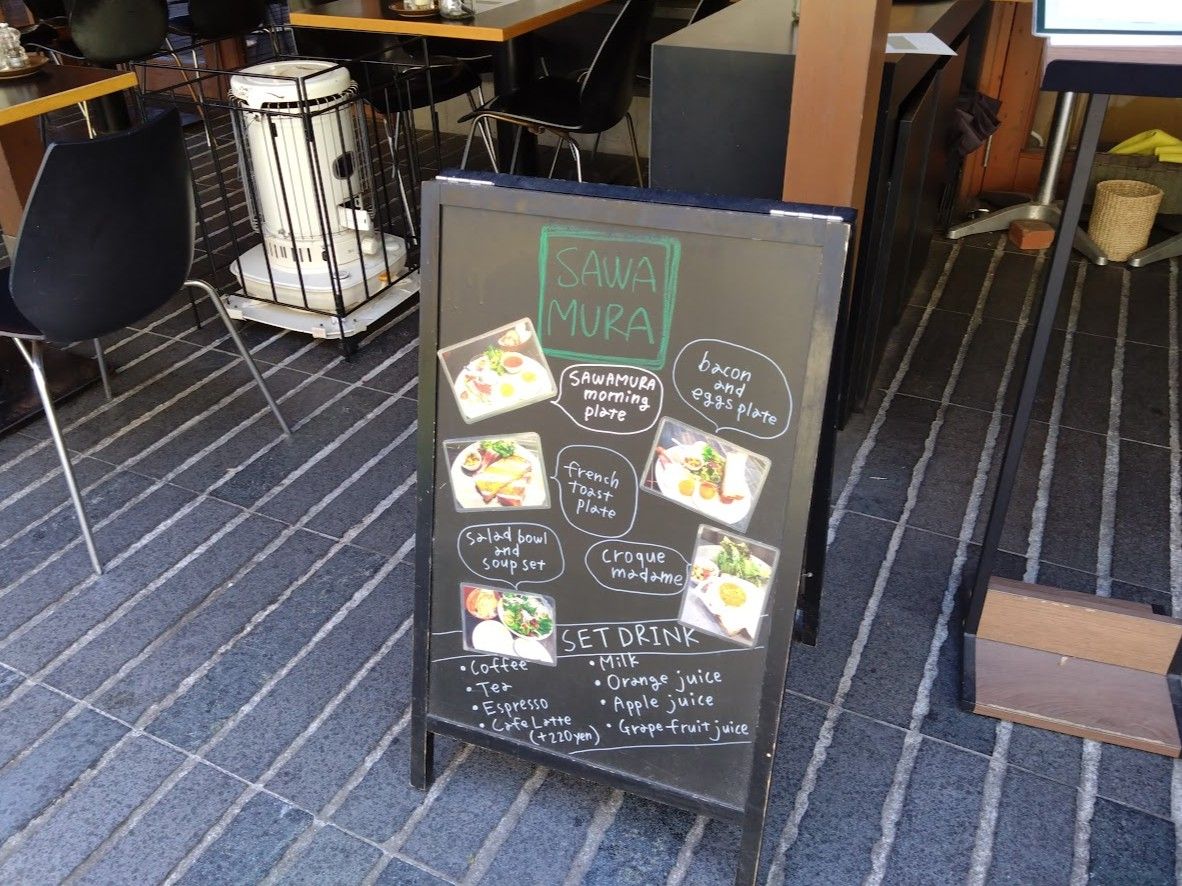 SAWA
MURA
SAWAMURA
morning
plate
bacon
and
eggs plate
french
toast
plate
salad bowl
and
soup set
croque
madame
SET DRINK
• Coffee
• Tea
• Espresso
• Cafe Latte
(+220yen)
• Milk
• Orange juice
• Apple juice
• Grapefruit juice